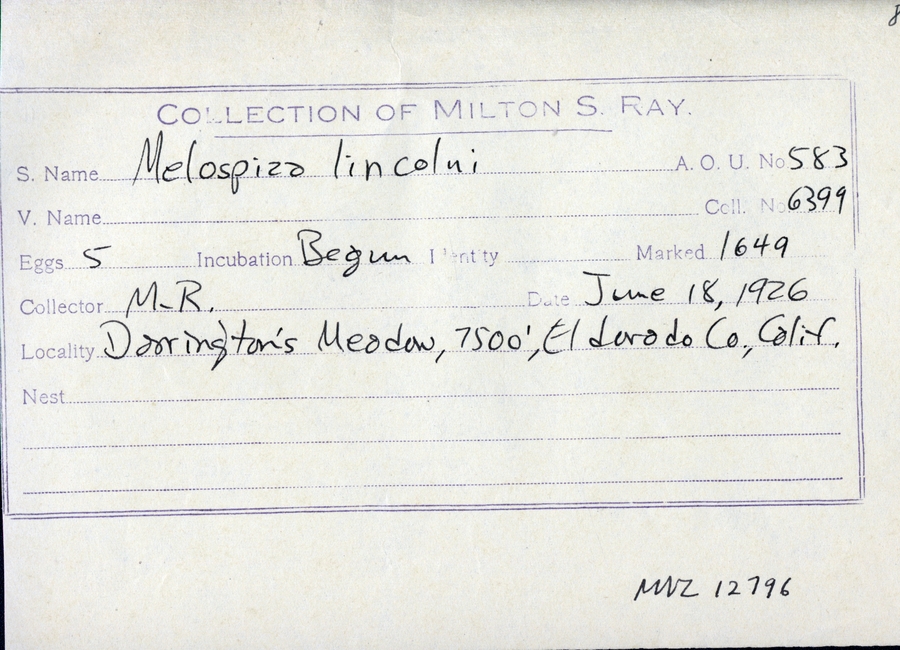 COLLECTION OF MILTON S. RAY.
S. Name Melospiza lincolni A. O. U. No 583
V. Name Coll. No 6399
Eggs 5 Incubation Begun Identity Marked 1649
Collector M-R. Date June 18, 1926
Locality Dorrington's Meadow, 7500', El dorado Co., Calif.
Nest
MVZ 12796